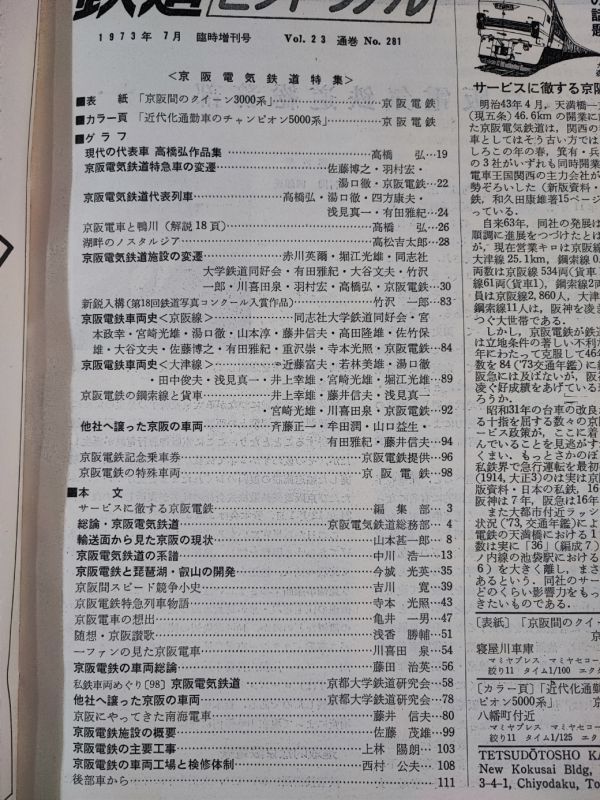 鉄道ピクトリアル
1973年7月 臨時増刊号 Vol. 23 通巻 No. 281
<京阪電気鉄道特集>
■表 紙「京阪間のクイーン3000系」……京阪電鉄
■カラー頁「近代化通勤車のチャンピオン5000系」……京阪電鉄
■グラフ
現代の代表車 高橋弘作品集……高橋 弘…19
京阪電気鉄道特急車の変遷……佐藤博之・羽村宏・
湯口徹・京阪電鉄…22
京阪電気鉄道代表列車……高橋弘・湯口徹・四方康夫・
浅見真一・有田雅紀…24
京阪電車と鴨川(解説18頁)……高橋 弘…26
湖畔のノスタルジア……高松吉太郎…28
京阪電気鉄道施設の変遷……赤川英爾・堀江光雄・同志社
大学鉄道同好会・有田雅紀・大谷文夫・竹沢
一郎・川喜田泉・羽村宏・高橋弘・京阪電鉄…30
新鋭入構(第18回鉄道写真コンクール入賞作品)……竹沢 一郎…83
京阪電鉄車両史<京阪線>……同志社大学鉄道同好会・宮
本政幸・宮崎光雄・湯口徹・山本淳・藤井信夫・高田隆雄・佐竹保
雄・大谷文夫・佐藤博之・有田雅紀・重沢崇・寺本光照・京阪電鉄…84
京阪電鉄車両史<大津線>……近藤富夫・若林美雄・湯口徹
・田中俊夫・浅見真一・井上幸雄・宮崎光雄・堀江光雄…89
京阪電鉄の鋼索線と貨車……井上幸雄・藤井信夫・浅見真一・
宮崎光雄・川喜田泉・京阪電鉄…92
他社へ譲った京阪の車両……斉藤正一・牟田潤・山口益生・
有田雅紀・藤井信夫…94
京阪電鉄記念乗車券……京阪電鉄提供…96
京阪電鉄の特殊車両……京阪電鉄…98
■本 文
サービスに徹する京阪電鉄……編集部…3
総論・京阪電気鉄道……京阪電気鉄道総務部…4
輸送面から見た京阪の現状……山本甚一郎…8
京阪電気鉄道の系譜……中川 浩一…13
京阪電鉄と琵琶湖・叡山の開発……今城 光英…35
京阪間スピード競争小史……吉川 寛…39
京阪電鉄特急列車物語……寺本 光照…43
京阪電車の想出……亀井 一男…47
随想・京阪讃歌……浅香 勝輔…51
一ファンの見た京阪電車……川喜田 泉…54
京阪電鉄の車両総論……藤田 治英…56
私鉄車両めぐり〔98〕京阪電気鉄道……京都大学鉄道研究会…58
他社へ譲った京阪の車両……京都大学鉄道研究会…78
京阪にやってきた南海電車……藤井 信夫…80
京阪電鉄施設の概要……佐藤 茂雄…99
京阪電鉄の主要工事……上林 陽朗…103
京阪電鉄の車両工場と検修体制……西村 公夫…108
後部車から……111
サービスに徹する京阪
明治43年4月,天満橋一
(現五条)46.6kmの開業に
た京阪電気鉄道は,関西の
車としてはそう古い方では
しろこの年の春,箕有・兵
の3社がいずれも同時開業
電車王国関西の主力会社が
勢ぞろいした(新版資料・
鉄,和久田康雄著15ページ
っている.
自来63年,同社の発展は
順調に進展をつづけたとは
が,現在営業キロは京阪線
大津線25.1km,鋼索線0.
両数は京阪線534両(貨車
線61両(貨車1),鋼索線2両
員は京阪線2,860人,大津
鋼索線11人は,阪神を凌き
つぐ大世帯である.
しかし,京阪電鉄が鉄道
は立地条件の著しい不利だ
年にわたって克服して46
数を84('73交通年鑑)に
阪急には及ばないが,阪神
凌ぐ好成績をあげている
ろうか.
昭和31年の台車の改良
る十指を屈する数々の京
ービス政策が,ここに着
んでいることを見逃がす
くまい.もっとさかのぼ
私鉄界で急行運転を最初
(1914,大正3)のは実は京
版資料・日本の私鉄,16
阪神は7年,阪急は16年
また大都市付近ラッシ
状況('73,交通年鑑)によ
電鉄の天満橋における1
数は実に「36」(編成7)
ノ内線の池袋駅における
6)を大きく離し,まさ
あるという.同社のサー
どのくらい影響力をもっ
きたいものである.
[表紙]「京阪間のクイー
寝屋川車庫
マミヤプレス マミヤセコー
絞り11 タイム1/100 エクタ
[カラー頁]「近代化通
ピオン5000系」
八幡町付近
マミヤプレス マミヤセコー
絞り11 タイム1/125 エク
TETSUDŌTOSHO KA
New Kokusai Bldg,
3-4-1, Chiyodaku, To